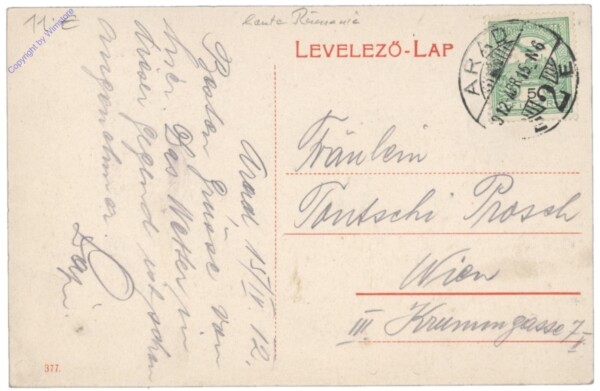 11,- €
Copyright by Wienstore
heute Rumänien
LEVELEZŐ-LAP
ARAD
912 APR 15. N6
5
Arad, 15/IV. 12.
Besten Grüsse von
hier. Das Wetter in
dieser Gegend ist schon
angenehmer.
Fräulein
Tontschi Prosch
Wien
III Krummgasse 7
377.